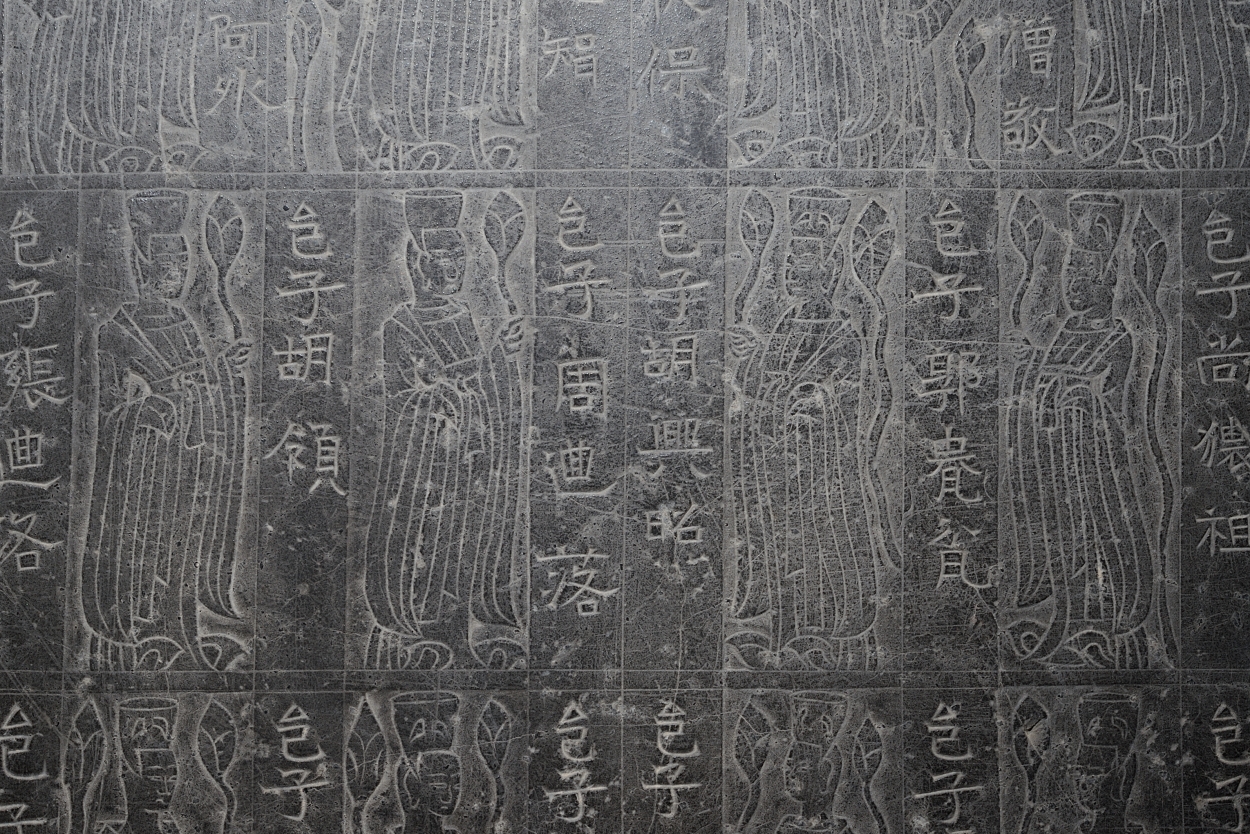 僧敬
保
智
阿
邑子尚祖
邑子郭
邑子胡興昭
邑子周迪落
邑子胡領
邑子迪洛
邑子
邑子
邑子
邑子
邑子
邑子